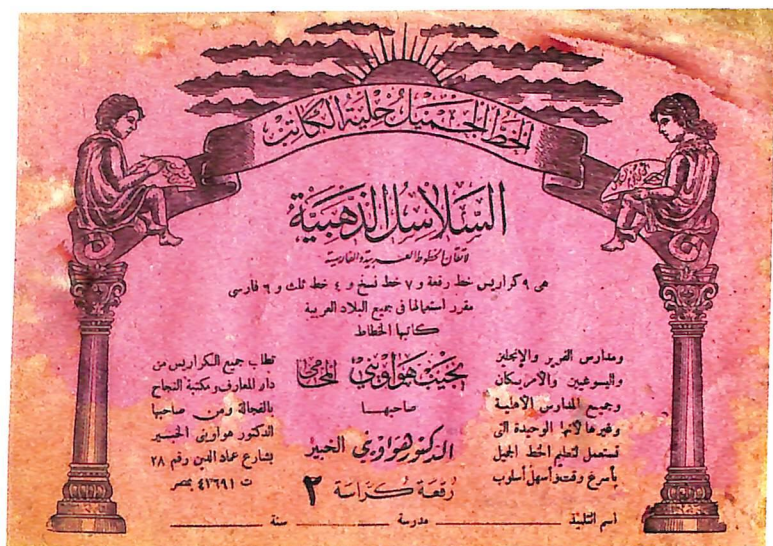 الخط الجميل حلية الكاتب
السلاسل الذهبية
لاتقان الخطوط العربية والفارسية
هى ٩ كراريس خط رقعة و ٧ خط نسخ و ٤ خط ثلث و ٦ فارسى
مقرر استعمالها فى جميع البلاد العربية
كاتبها الخطاط
نجيب هواويني المحامي
صاحبها
الدكتور هواويني الخبير
رقعة كراسة ٢
ومدارس الفرير والإنجليز
واليسوعيين والأمريكان
وجميع المدارس الأهلية
وغيرها لأنها الوحيدة التى
تستعمل لتعليم الخط الجميل
بأسرع وقت وأسهل أسلوب
تطلب جميع الكراريس من
دار المعارف ومكتبة النجاح
بالفجالة ومن صاحبها
الدكتور هواويني الخبير
بشارع عماد الدين رقم ٢٨
ت ٤٢٦٩١ بمصر
اسم التلميذ مدرسة سنة